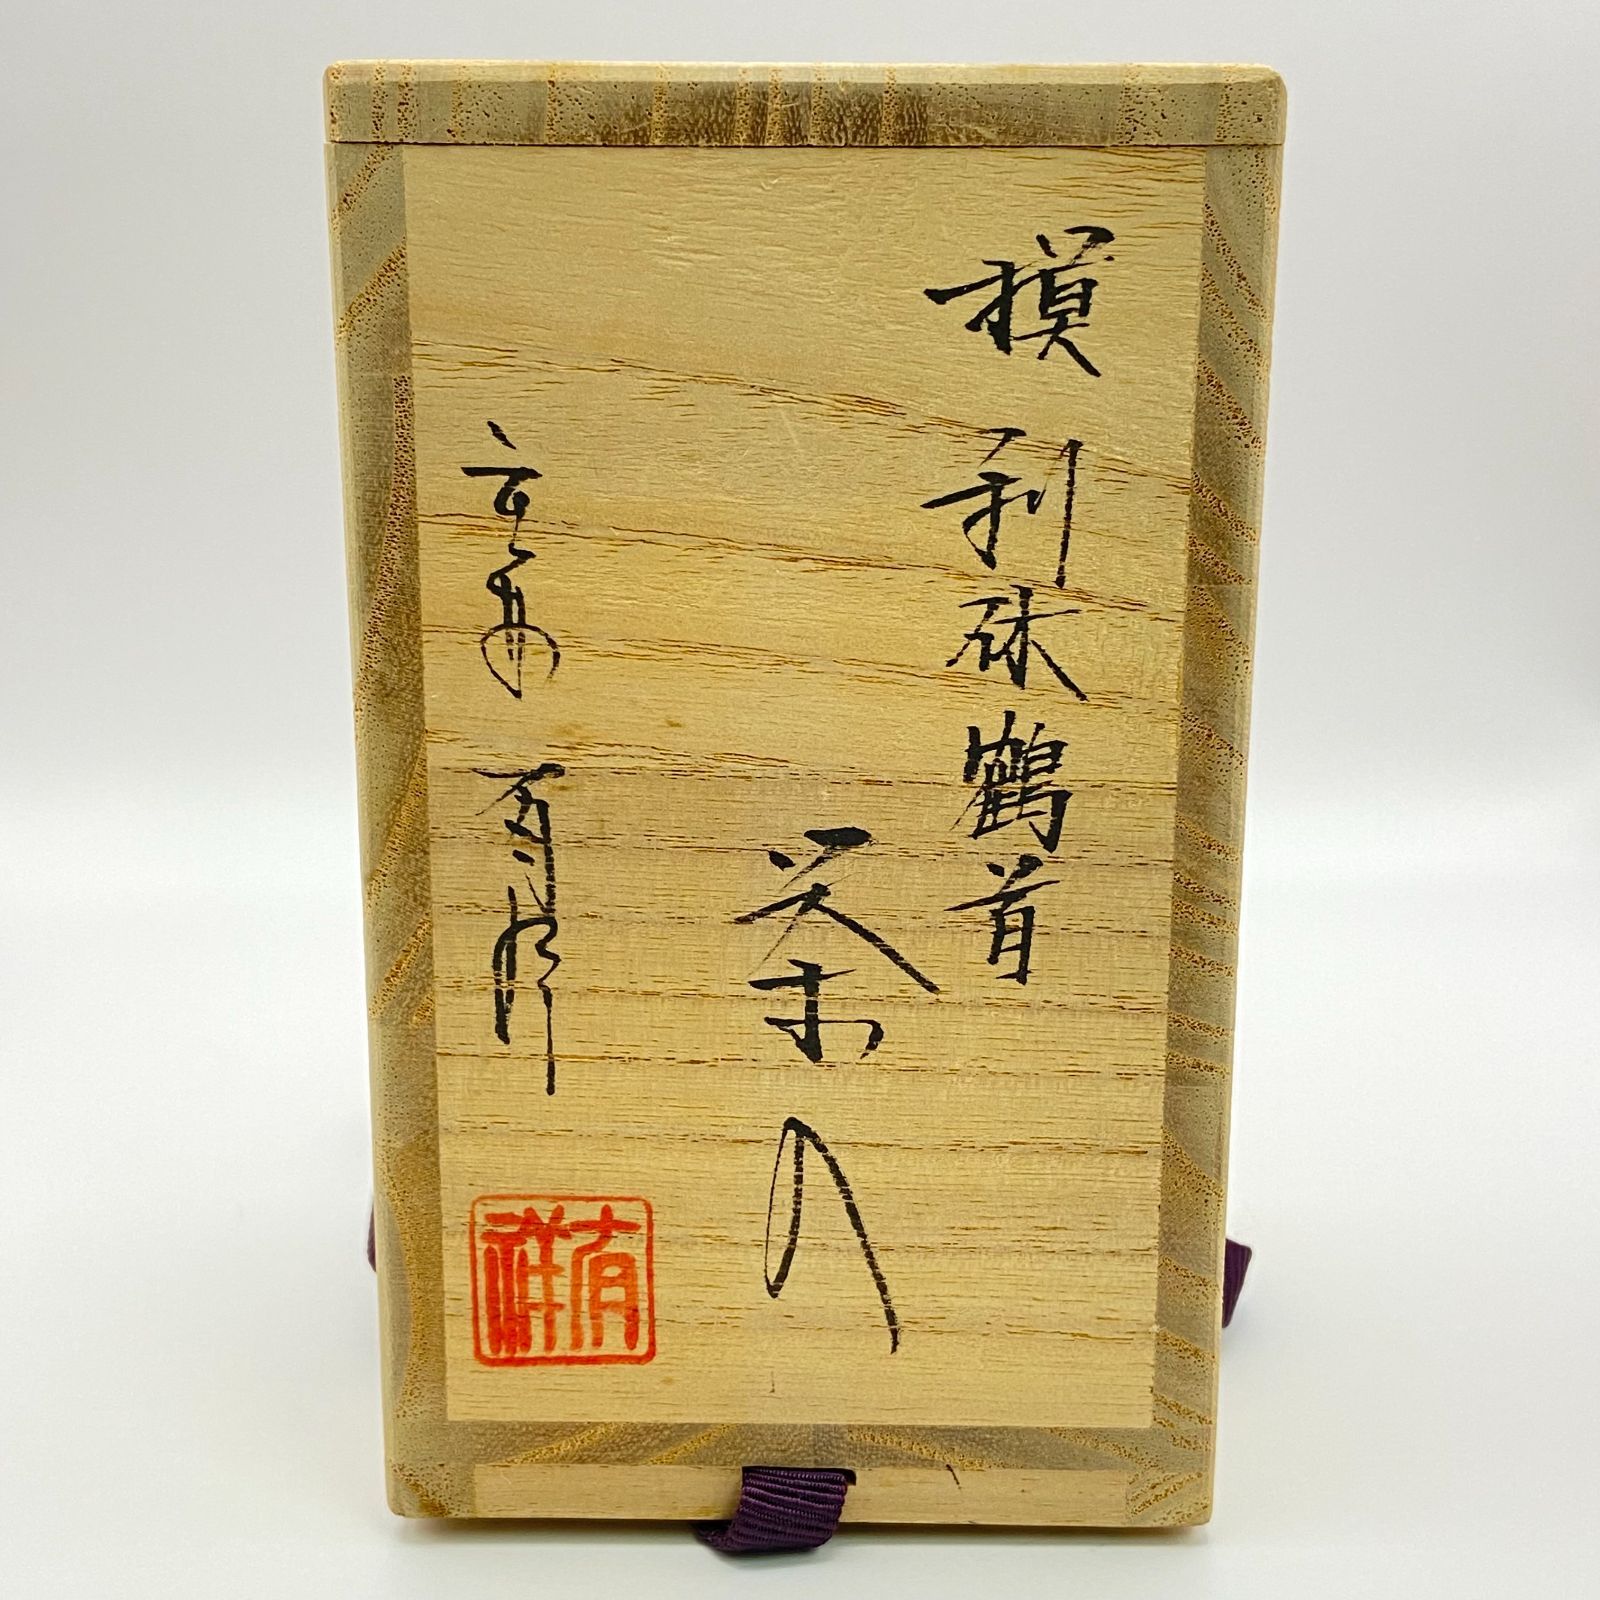 模利休鶴首
茶入
京都
有祥